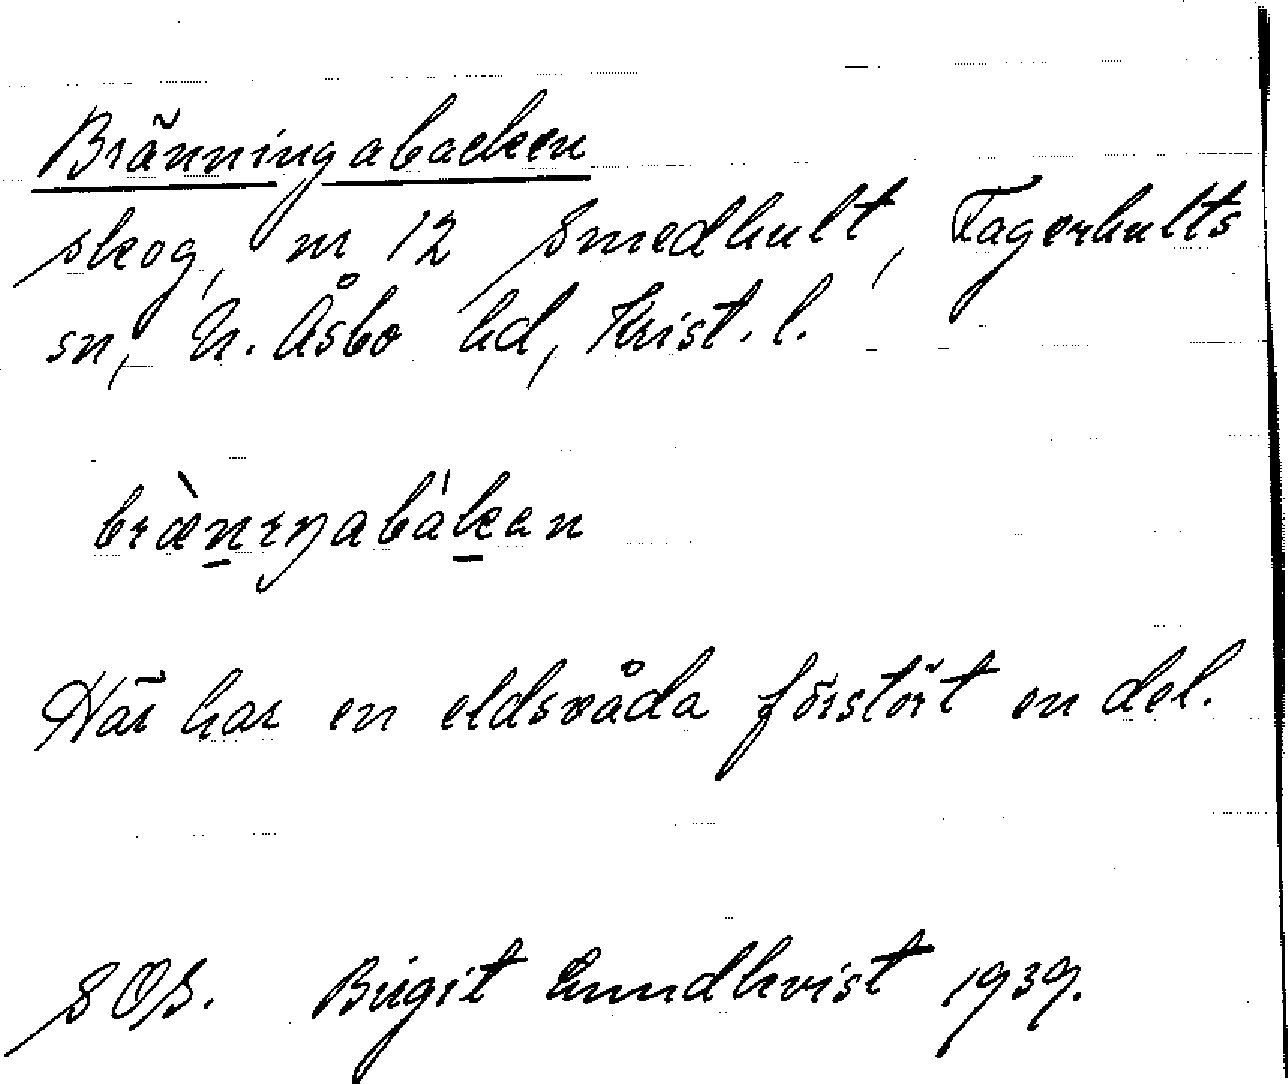 Bränningabacken
skog, nr 12 Smedhult, Fagerhults
sn, N. Åsbo hd, Krist. l.
bræ̀nɪŋabàkan
Här har en eldsvåda förstört en del.
SOS. Birgit Lundkvist 1939.